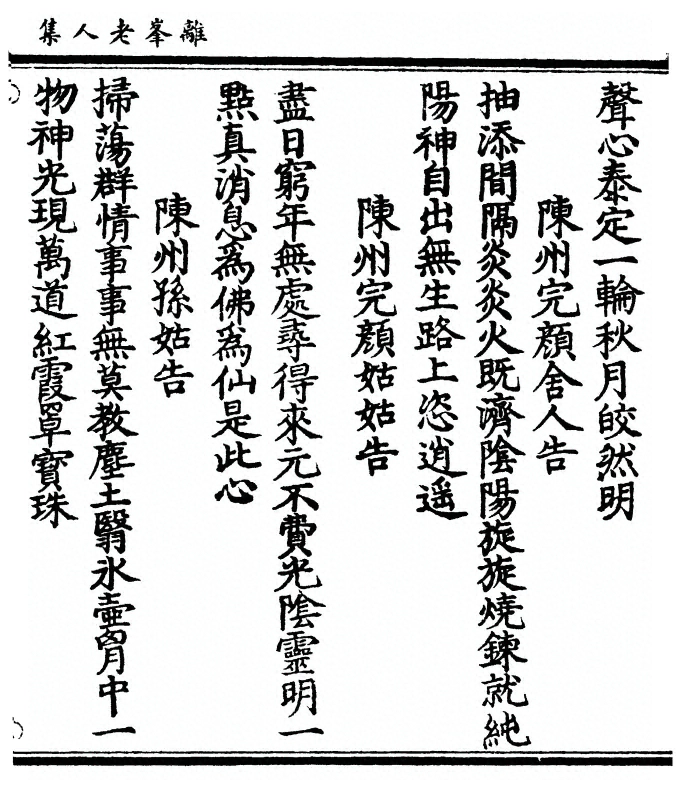 離峯老人集
聲心泰定一輪秋月皎然明
陳州完顏舍人告
抽添間隔炎炎火既濟陰陽旋旋燒鍊就純
陽神自出無生路上恣逍遥
陳州完顏姑姑告
盡日窮年無處尋得來元不費光陰靈明一
點真消息爲佛爲仙是此心
陳州孫姑告
掃蕩群情事事無莫教塵土翳氷壺胷中一
物神光現萬道紅霞罩寳珠